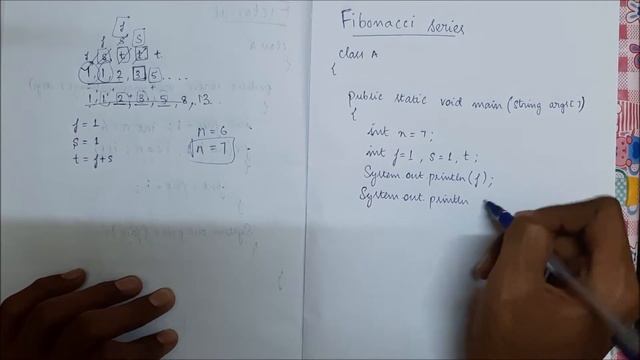 f
f s
f s t t t
1, 1, 2, 3, 5, ....
1, 1, 2, 3, 5, 8, 13..
f = 1
s = 1
t = f+s
n = 6
n = 7
Fibonacci series
class A
{
public static void main (String args[ ])
{
int n = 7;
int f=1, s=1, t;
System.out.println(f);
System.out.println